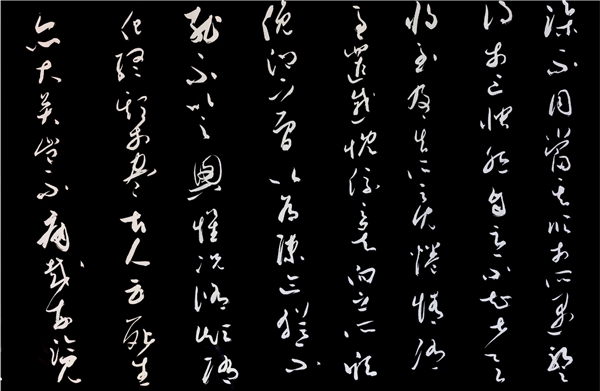 躁不同當其欣於所遇暫
得於己快然自足不知老之
將至及其所之既倦情隨
事遷感慨係之矣向之所欣
俛仰之間以為陳迹猶不
能不以之興懷況脩短隨
化終期於盡古人云死生
亦大矣豈不痛哉每攬